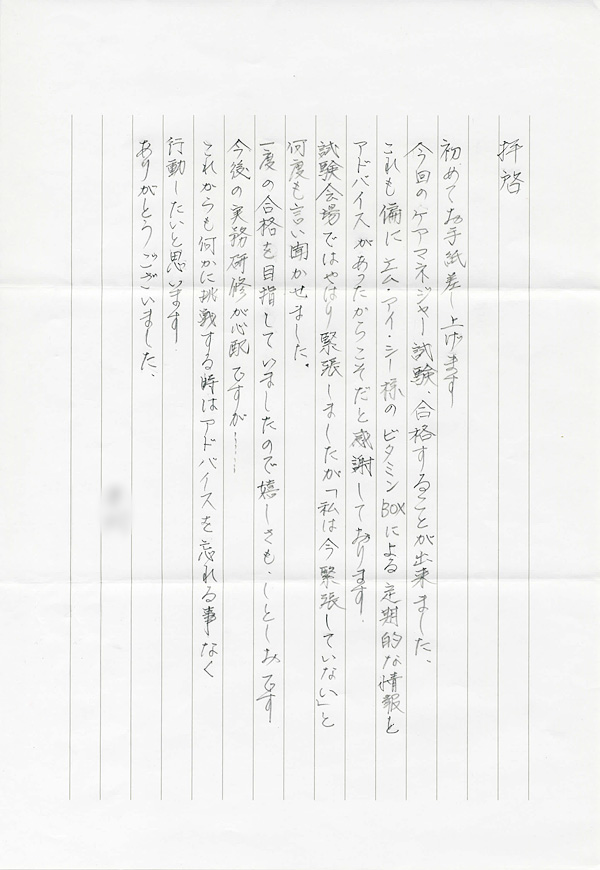 拝啓
初めてお手紙差し上げます
今回のケアマネジャー試験、合格することが出来ました、
これも偏にエム・アイ・シー様のビタミンBOXによる定期的な情報と
アドバイスがあったからこそだと感謝しております.
試験会場ではやはり緊張しましたが「私は今緊張していない」と
何度も言い聞かせました。
一度の合格を目指していましたので嬉しさも・しとしおです
今後の実務研修が心配ですが……
これからも何かに挑戦する時はアドバイスを忘れる事なく
行動したいと思います.
ありがとうございました、